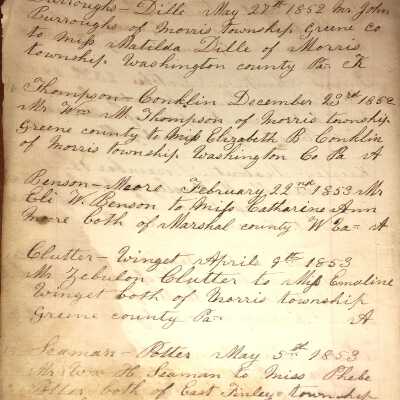 Burroughs - Dille May 27th 1852 Mr. John
Burroughs of Morris Township Greene Co
to Miss Matilda Dille of Morris
township Washington county Pa-
Thompson - Conklin December 23rd 1852
Mr Wm M Thompson of Morris township
Greene county to Miss Elizabeth B. Conklin
of Morris township Washington Co Pa A
Benson - Moore February 22nd 1853 Mr
Eli W. Benson to Miss Catharine Ann
Moore both of Marshal county W Va= A
Clutter - Winget April 9th 1853
Mr Zebulon Clutter to Miss Emoline
Winget both of Morris township
Greene county Pa- A
Seaman - Potter May 5th 1853
Mr Wm H Seaman to Miss Phebe
Potter both of East Finley township